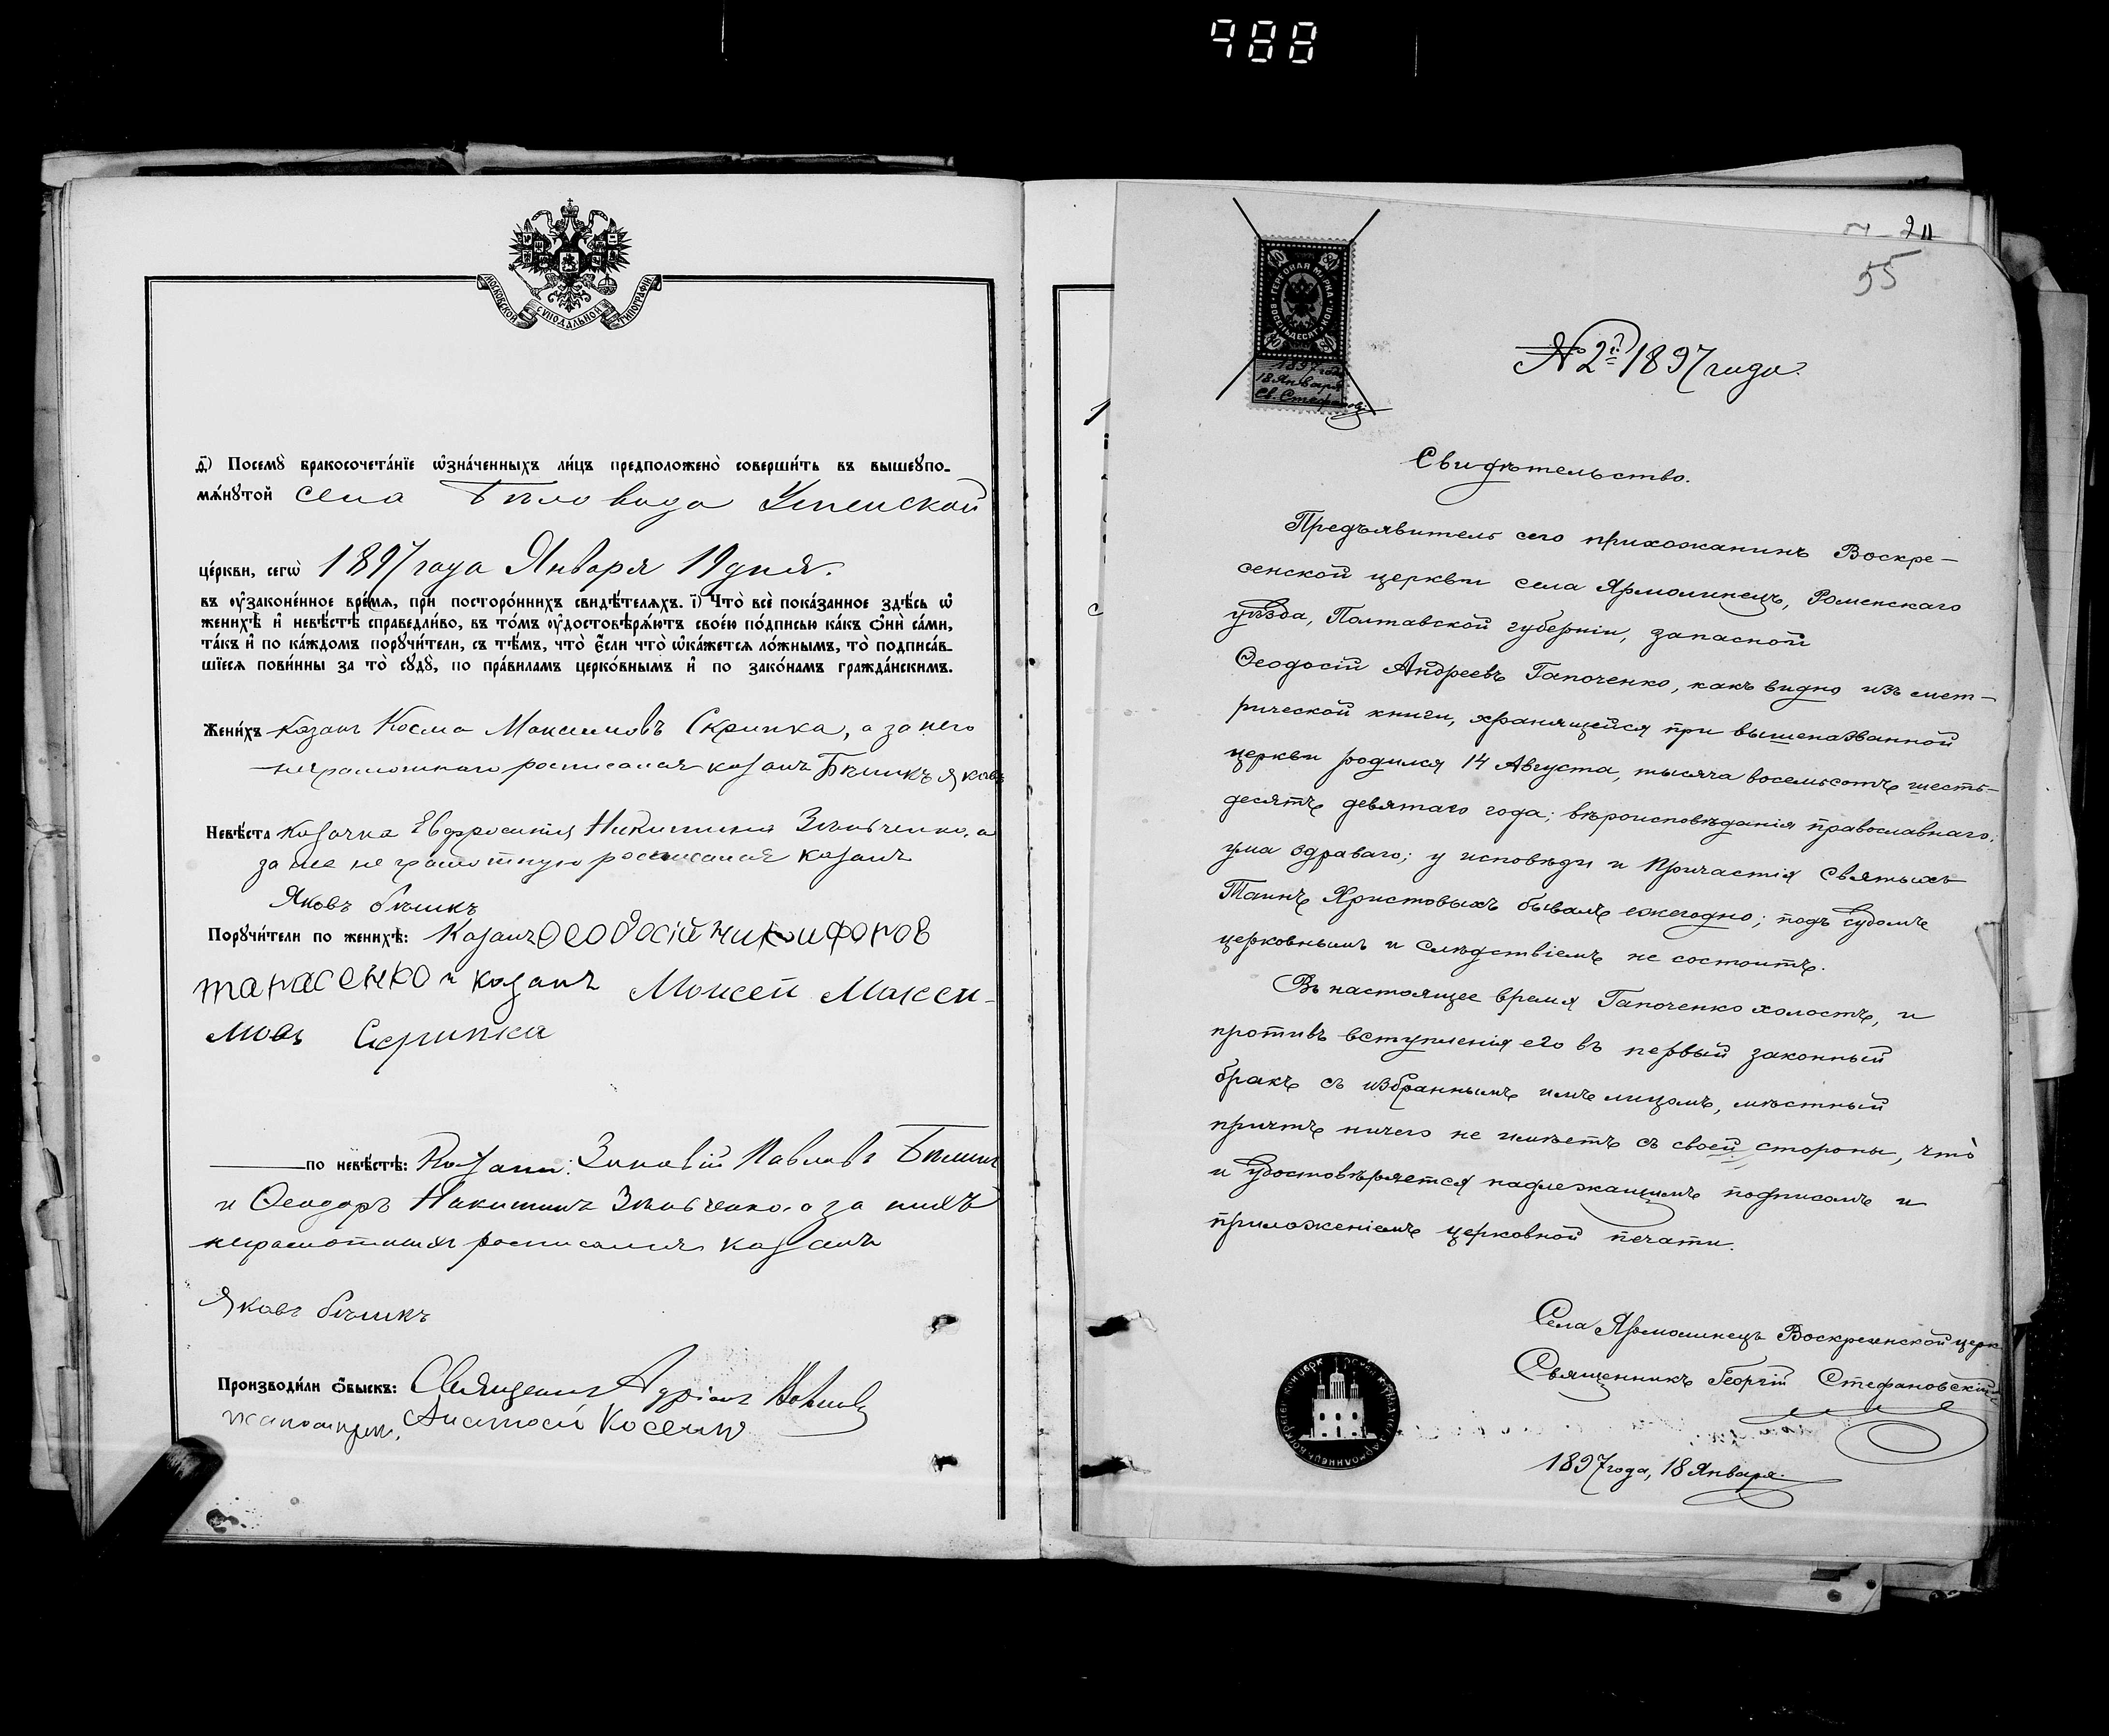 988
МОСКОВСКОЙ СѴНОДАЛЬНОЙ ТИПОГРАФІИ
д҃) Посемꙋ̀ бракосочета́нїе ѡ҆зна́ченныхъ ли́цъ предположено̀ соверши́ть въ вышеꙋпо-
мѧ́нꙋтой села Бѣловода Успенской
це́ркви, сегѡ̀ 1897 года Января 19 дня.
въ ᲂу҆законе́нное вре́мѧ, при посторо́ннихъ свидѣ́телѧхъ. і҃) Что̀ всѐ пока́занное здѣ́сь ѡ҆
женихѣ̀ и҆ невѣ́стѣ справедли́во, въ то́мъ ᲂу҆достовѣрѧ́ютъ свое́ю по́дписью ка́къ ѻ҆нѝ са́ми,
та́къ и҆ по ка́ждомъ порꙋчи́тели, съ тѣ́мъ, что̀ є҆́сли что̀ ѡ҆ка́жется ло́жнымъ, то̀ подписа́в-
шїеся пови́нны за то̀ сꙋдꙋ̀, по пра́виламъ церко́внымъ и҆ по зако́намъ гражда́нскимъ.
Жени́хъ казакъ Косма Максимовъ Скрипка, а за него
неграмотнаго росписался казакъ Бѣликъ Яковъ
Невѣ́ста козачка Евфросинія Никитина Зѣньченко, а
за нее не грамотную росписался казакъ
Яковъ бѣликъ
Порꙋчи́тели по женихѣ̀: Козакъ Ѳеодосій никифоров
танасенко и козакъ Моисей Макси-
мовъ Скрипка
по невѣ́стѣ: Козаки: Зиновій Павловъ Бѣликъ
и Ѳеодоръ Никитинъ Зѣньченко. а за нихъ
неграмотныхъ росписался козакъ
Яковъ бѣликъ
Производи́ли ѻ҆́быскъ: Священникъ Адріанъ
Косенко
55
ГЕРБОВАЯ МАРКА ВОСЕМЬДЕСЯТЪ КОП.
80
1897 года
18 Января
Св. Стефановскій
№ 2й 1897 года.
Свидѣтельство.
Предъявитель сего прихожанинъ Воскре-
сенской церкви села Ярмолинецъ, Роменскаго
уѣзда, Полтавской губерніи, запасной
Ѳеодосій Андреевъ Гапоченко, какъ видно изъ мет-
рической книги, хранящейся при вышеназванной
церкви родился 14 Августа, тысяча восемьсотъ шесть-
десятъ девятаго года; вѣроисповѣданія православнаго;
ума здраваго; у исповѣди и Причастія Святыхъ
Таинъ Христовыхъ бываетъ ежегодно; подъ судомъ
церковнымъ и слѣдствіемъ не состоитъ.
Въ настоящее время Гапоченко холостъ, и
противъ вступленія его въ первый законный
бракъ съ избраннымъ имъ лицомъ, мѣстный
причтъ ничего не имѣетъ съ своей стороны, что
и удостовѣряется надлежащимъ подписомъ и
приложеніемъ церковной печати.
Села Ярмолинецъ Воскресенской церк
Священникъ Георгій Стефановскій
1897 года, 18 Января.